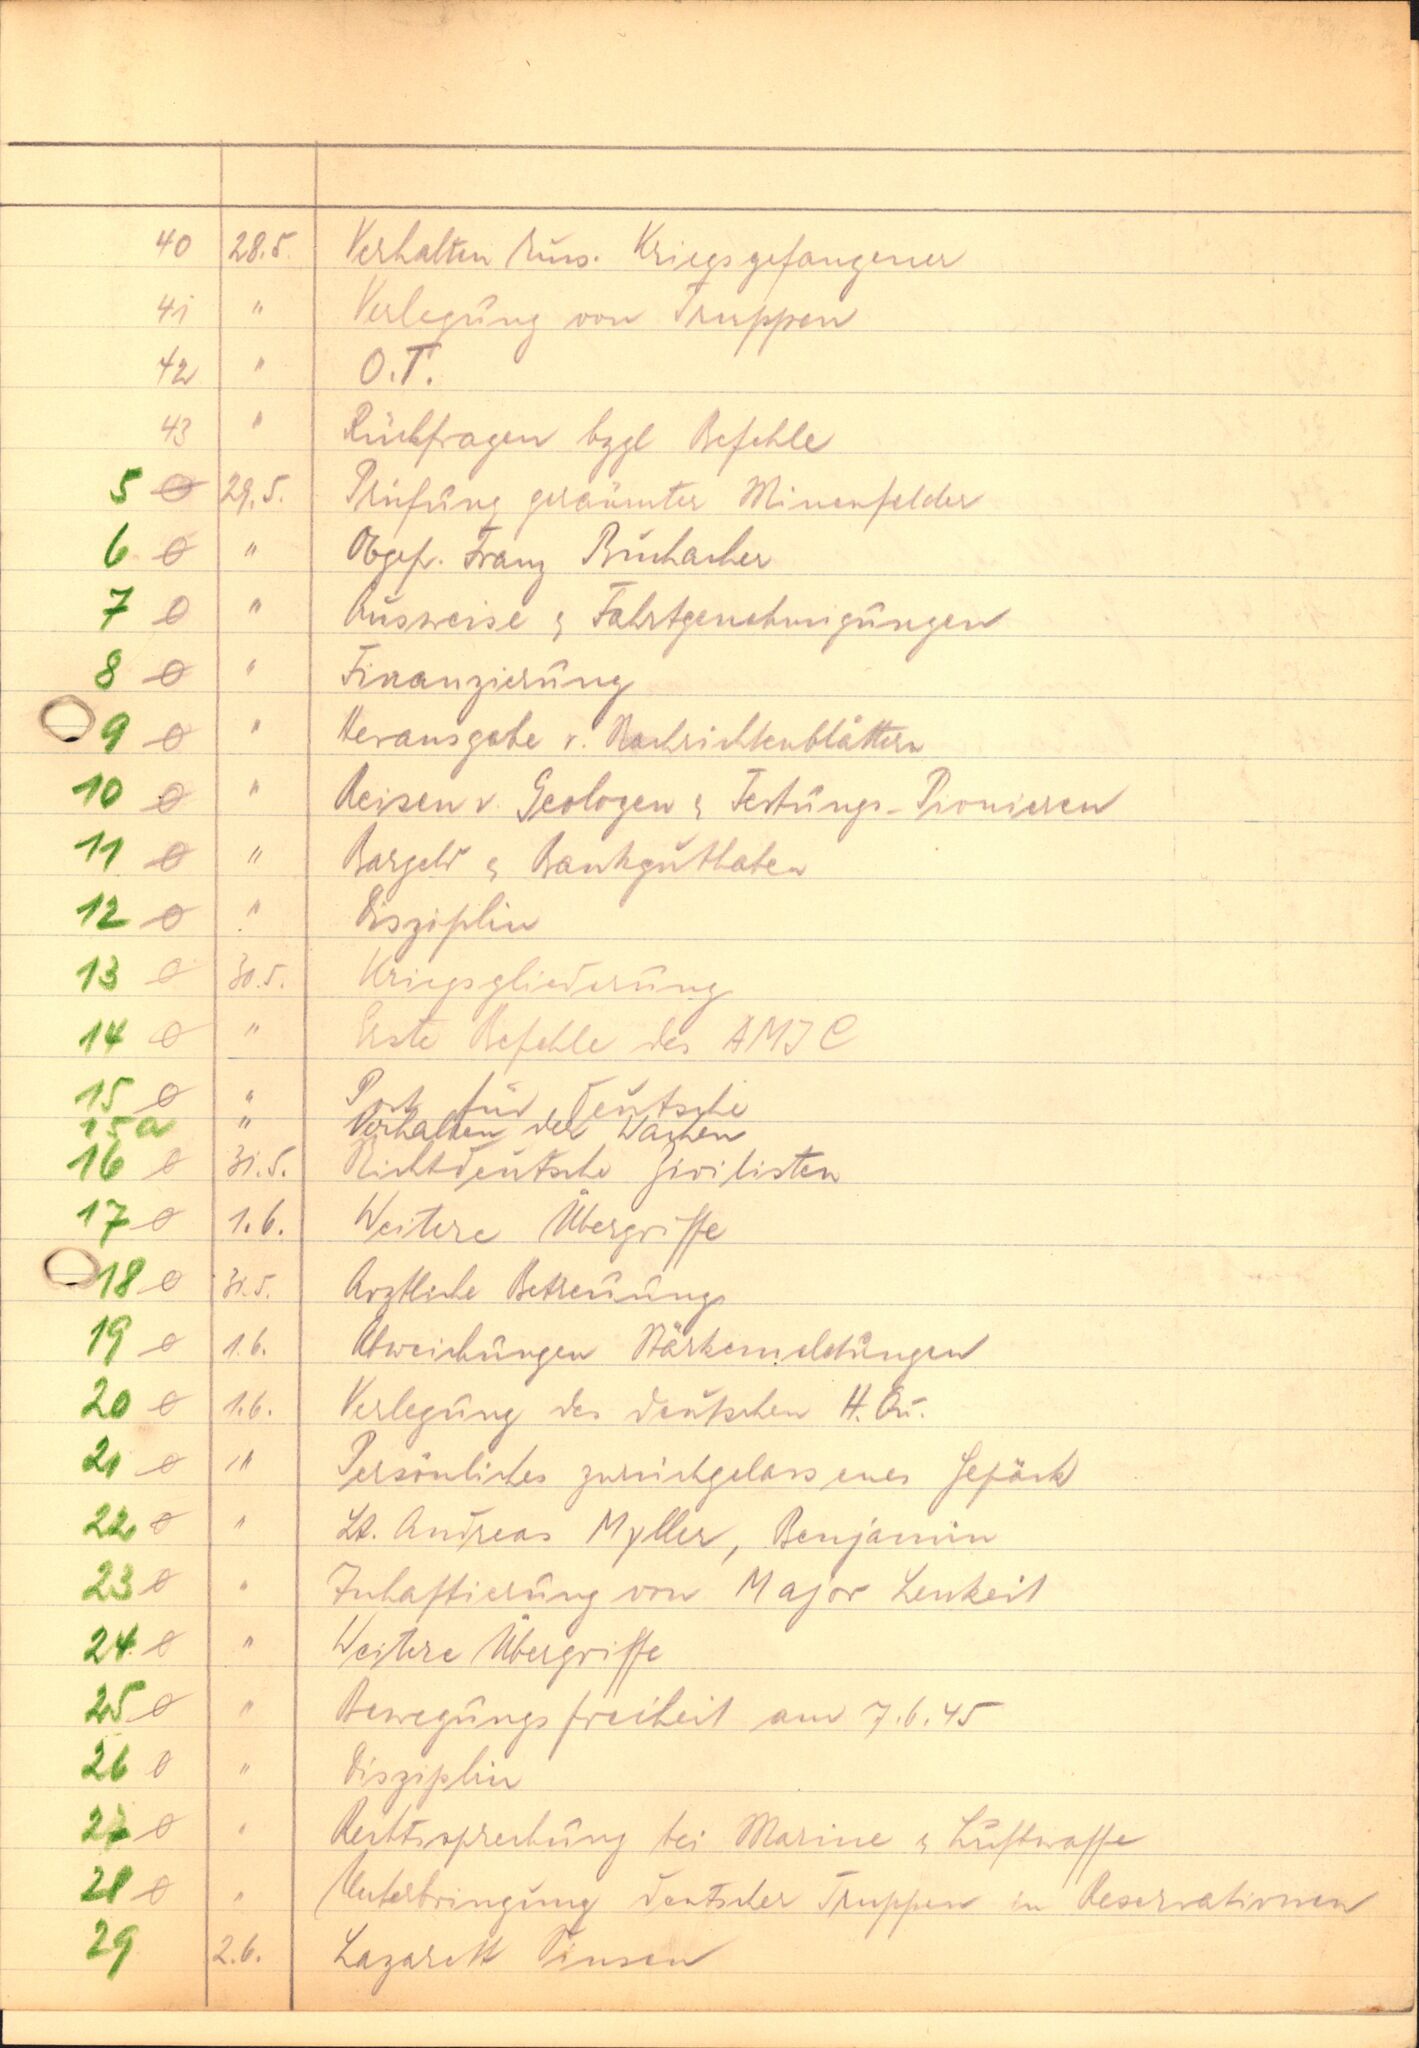 40 28.5. Verhalten russ. Kriegsgefangener
41 " Verlegung von Truppen
42 " O.T.
43 " Rückfragen bzgl Befehle
5 ø 29.5. Prüfung geräumter Minenfelder
6 ø " Obgefr. Franz Buchacher
7 ø " Ausweise & Fahrtgenehmigungen
8 ø " Finanzierung
9 ø " Herausgabe v. Nachrichtenblättern
10 ø " Reisen v. Geologen & Festungs-Pionieren
11 ø " Bargeld & Bankguthaben
12 ø " Disziplin
13 ø 30.5. Kriegsgliederung
14 ø " Erste Befehle des AMIC
15 ø " Post für Deutsche
15a " Verhalten der Wachen
16 ø 31.5. Nichtdeutsche Zivilisten
17 ø 1.6. Weitere Übergriffe
18 ø 31.5. Ärztliche Betreuung
19 ø 1.6. Abweichungen Stärkemeldungen
20 ø 1.6. Verlegung des deutschen H.Qu.
21 ø " Persönliches zurückgelassenes Gepäck
22 ø " Lt. Andreas Myller, Benjamin
23 ø " Inhaftierung von Major Lenkeit
24 ø " Weitere Übergriffe
25 ø " Bewegungsfreiheit am 7.6.45
26 ø " Disziplin
27 ø " Rechtssprechung bei Marine & Luftwaffe
28 ø " Unterbringung deutscher Truppen in Reservationen
29 2.6. Lazarett